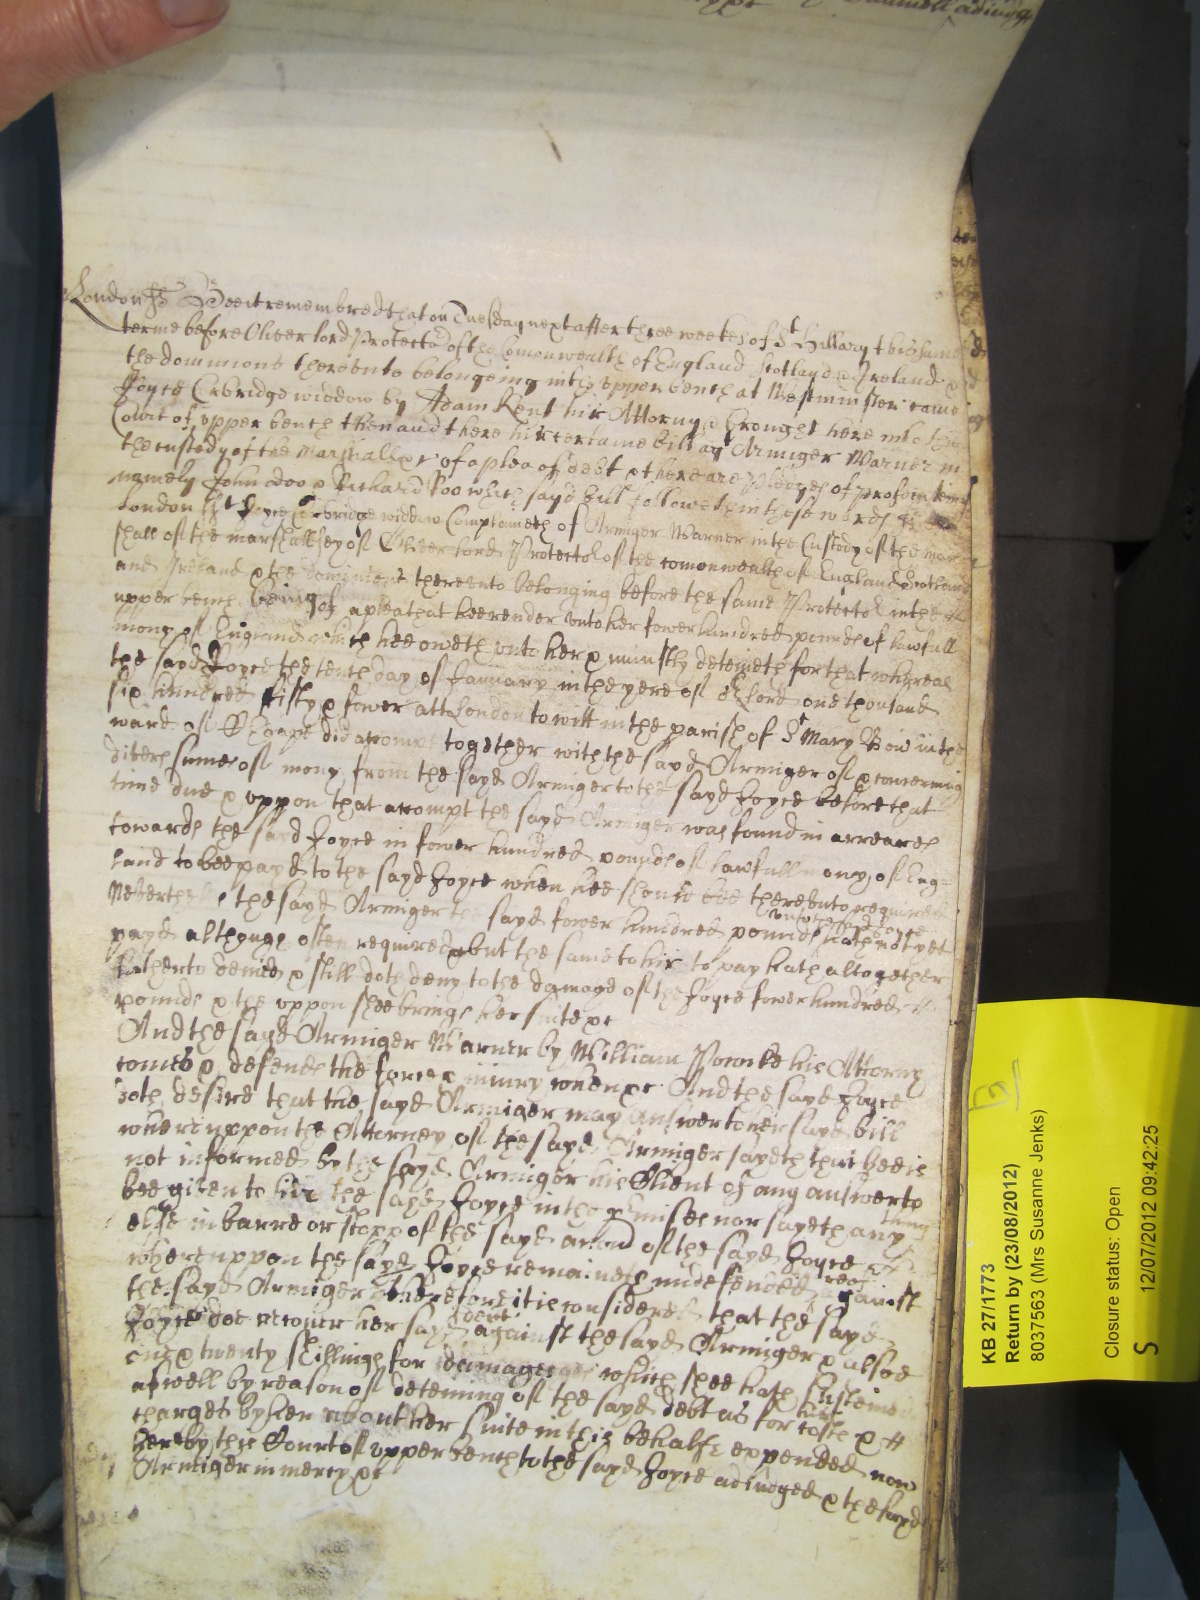 London ss Bee it remembred that on Tuesday next after three weekes of St Hillary this same
terme before Oliver lord Protector of the Comonwealth of England Scotland & Ireland &
the dominions thereunto belongeing in the upper bench at Westminster came
Joyce Corbridge widdow by Adam Kent hir Attorny & brought here into the
Court of upper bench then and there hir certaine bill agt Armiger Warner in
the custody of the Marshall &c of a plea of debt & there are pledges of prosecucion
namely John doo & Richard Roo which sayd bill followeth in these words
London ss Joyce Corbridge widdow Complaineth of Armiger Warner in the Custody of the mar
shall of the marshallsey of Oliver lord Protector of the comonwealth of England Scotland
and Ireland & the dominions thereunto belonging before the same Protector in the
upper bench being of a plea that hee render unto her fower hundred pounds of lawfull
mony of England which hee oweth unto her & uniustly deteineth for that whereas
the sayd Joyce the tenth day of January in the yere of or lord one thousand
six hundred fifty & fower att London to witt in the parish of St Mary Bow in the
ward of Cheape did accompt together with the sayd Armiger of & concerning
divers sumes of mony from the sayd Armiger to the sayd Joyce before that
time due & uppon that accompt the sayd Armiger was found in arreares
towards the sayd Joyce in fower hundred pounds of lawfull mony of Eng=
land to bee payd to the sayd Joyce when hee should bee thereunto required
Neverthe the sayd Armiger the sayd fower hundred pounds unto the sd Joyce hath not yet
payd although often required but the same to hir to pay hath altogether
hitherto denied & still doth deny to the damage of the Joyce fower hundred
pounds & the uppon shee brings her suite &c
And the sayd Armiger Warner by William his Attorny
comes & defends the force & iniury when &c And the sayd Joyce
doth desire that the sayd Armiger may answer to her sayd bill
whereuppon the Attorney of the sayd Armiger sayeth that hee is
not informed by the sayd Armiger his Client of any answer to
bee given to hir the sayd Joyce in the premises nor sayeth any thing
else in barre or stopp of the sayd accion of the sayd Joyce
whereuppon the sayd Joyce remaineth undefended against
the sayd Armiger Therefore it is considered that the sayd
Joyce doe recover her sayd debt against the sayd Armiger & alsoe
& twenty shillings for damages which shee hath susteined
aswell by reason of deteining of the sayd debt as for costs &
charges by her about her suite in this behalfe expended now
here by this Court of upper bench to the sayd Joyce adiudged & the sayd
Armiger in mercy &c
KB 27/1773
Return by (23/08/2012)
8037563 (Mrs Susanne Jenks)
Closure status: Open
S 12/07/2012 09:42:25